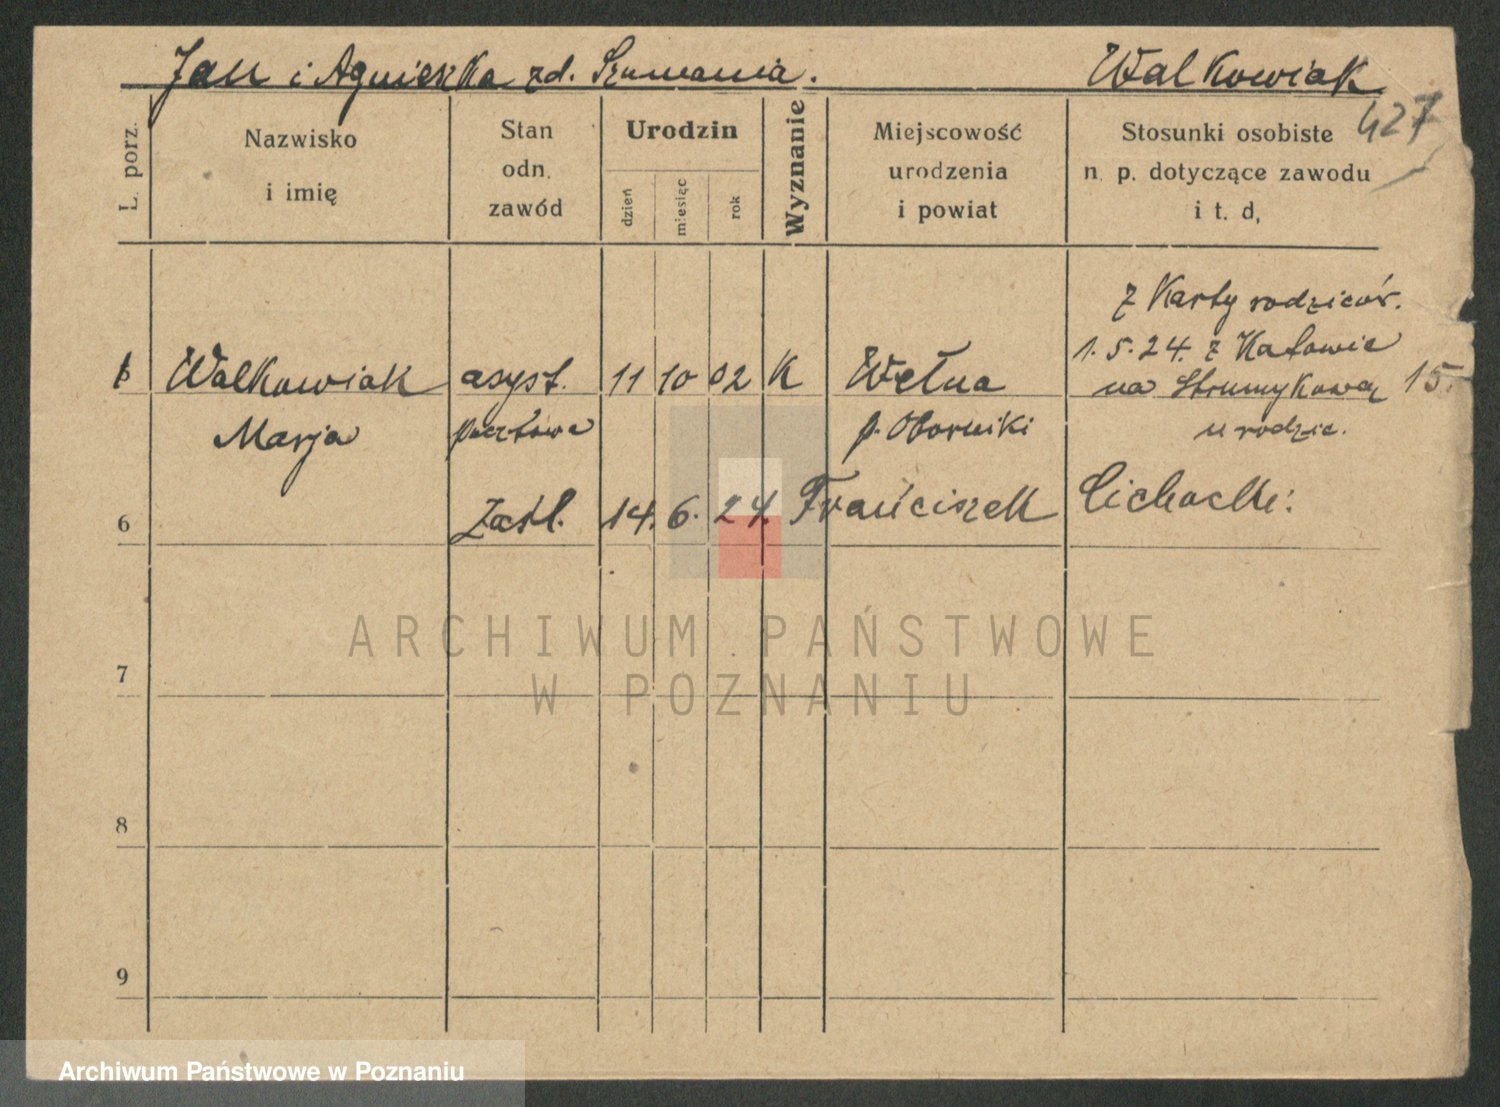 Jan i Agnieszka zd. Szumania. Walkowiak
427
L. porz.
Nazwisko
i imię
Stan
odn.
zawód
Urodzin
dzień
miesiąc
rok
Wyznanie
Miejscowość
urodzenia
i powiat
Stosunki osobiste
n. p. dotyczące zawodu
i t. d,
z Karty rodziców.
1.5.24. z Katowic
Walkowiak asyst. 11 10 02 K Wełna na Strumykową 15.
Marja pocztowa p. Oborniki u rodzic.
6 Zaśl. 14. 6. 24. Franciszek Cichocki
7
8
9
ARCHIWUM PAŃSTWOWE
W POZNANIU
Archiwum Państwowe w Poznaniu